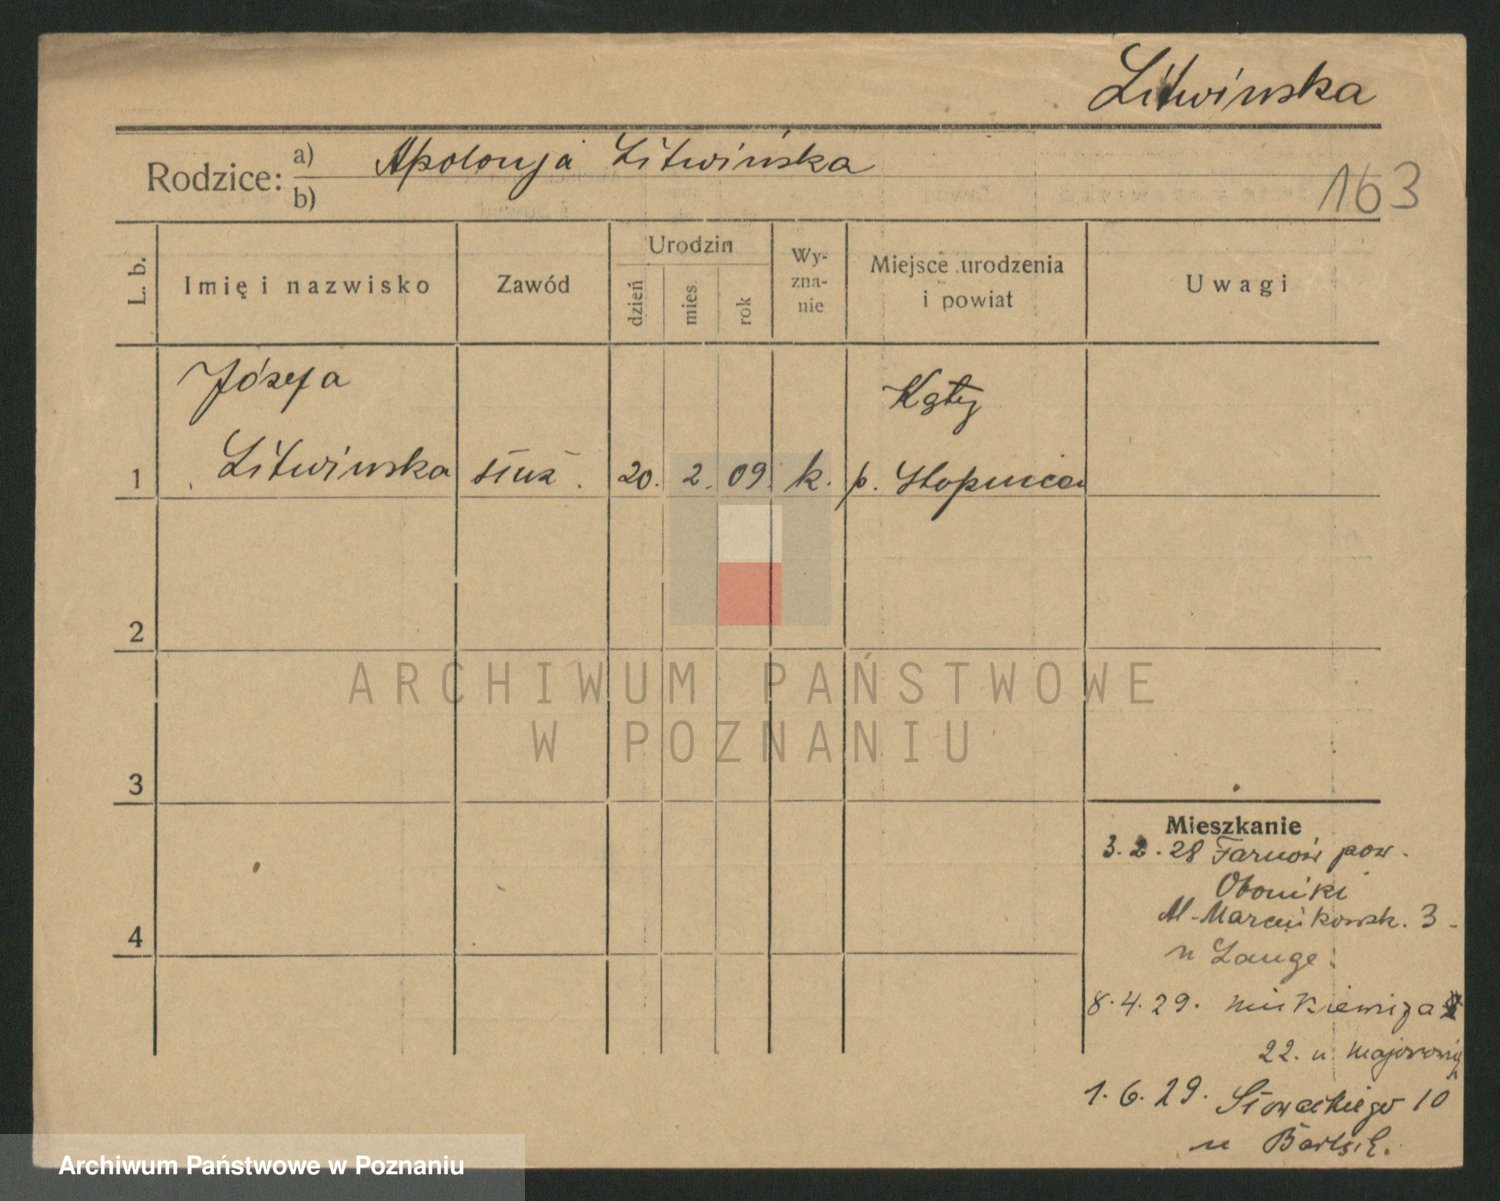 Litwińska
Rodzice: a) Apolonja Litwińska
b)
163
L. b.
Imię i nazwisko
Zawód
Urodzin
dzień
mies.
rok
Wy-
zna-
nie
Miejsce urodzenia
i powiat
Uwagi
Józefa
Kąty
1 Litwińska służ. 20. 2. 09. k. p. Stopnica
2
3
4
Mieszkanie
3. 2. 28 pow.
Oborniki
M-Marcinkowsk. 3
u Lange.
8. 4. 29.
22. u
1. 6. 29. Słowackiego 10
u
ARCHIWUM PAŃSTWOWE
W POZNANIU
Archiwum Państwowe w Poznaniu